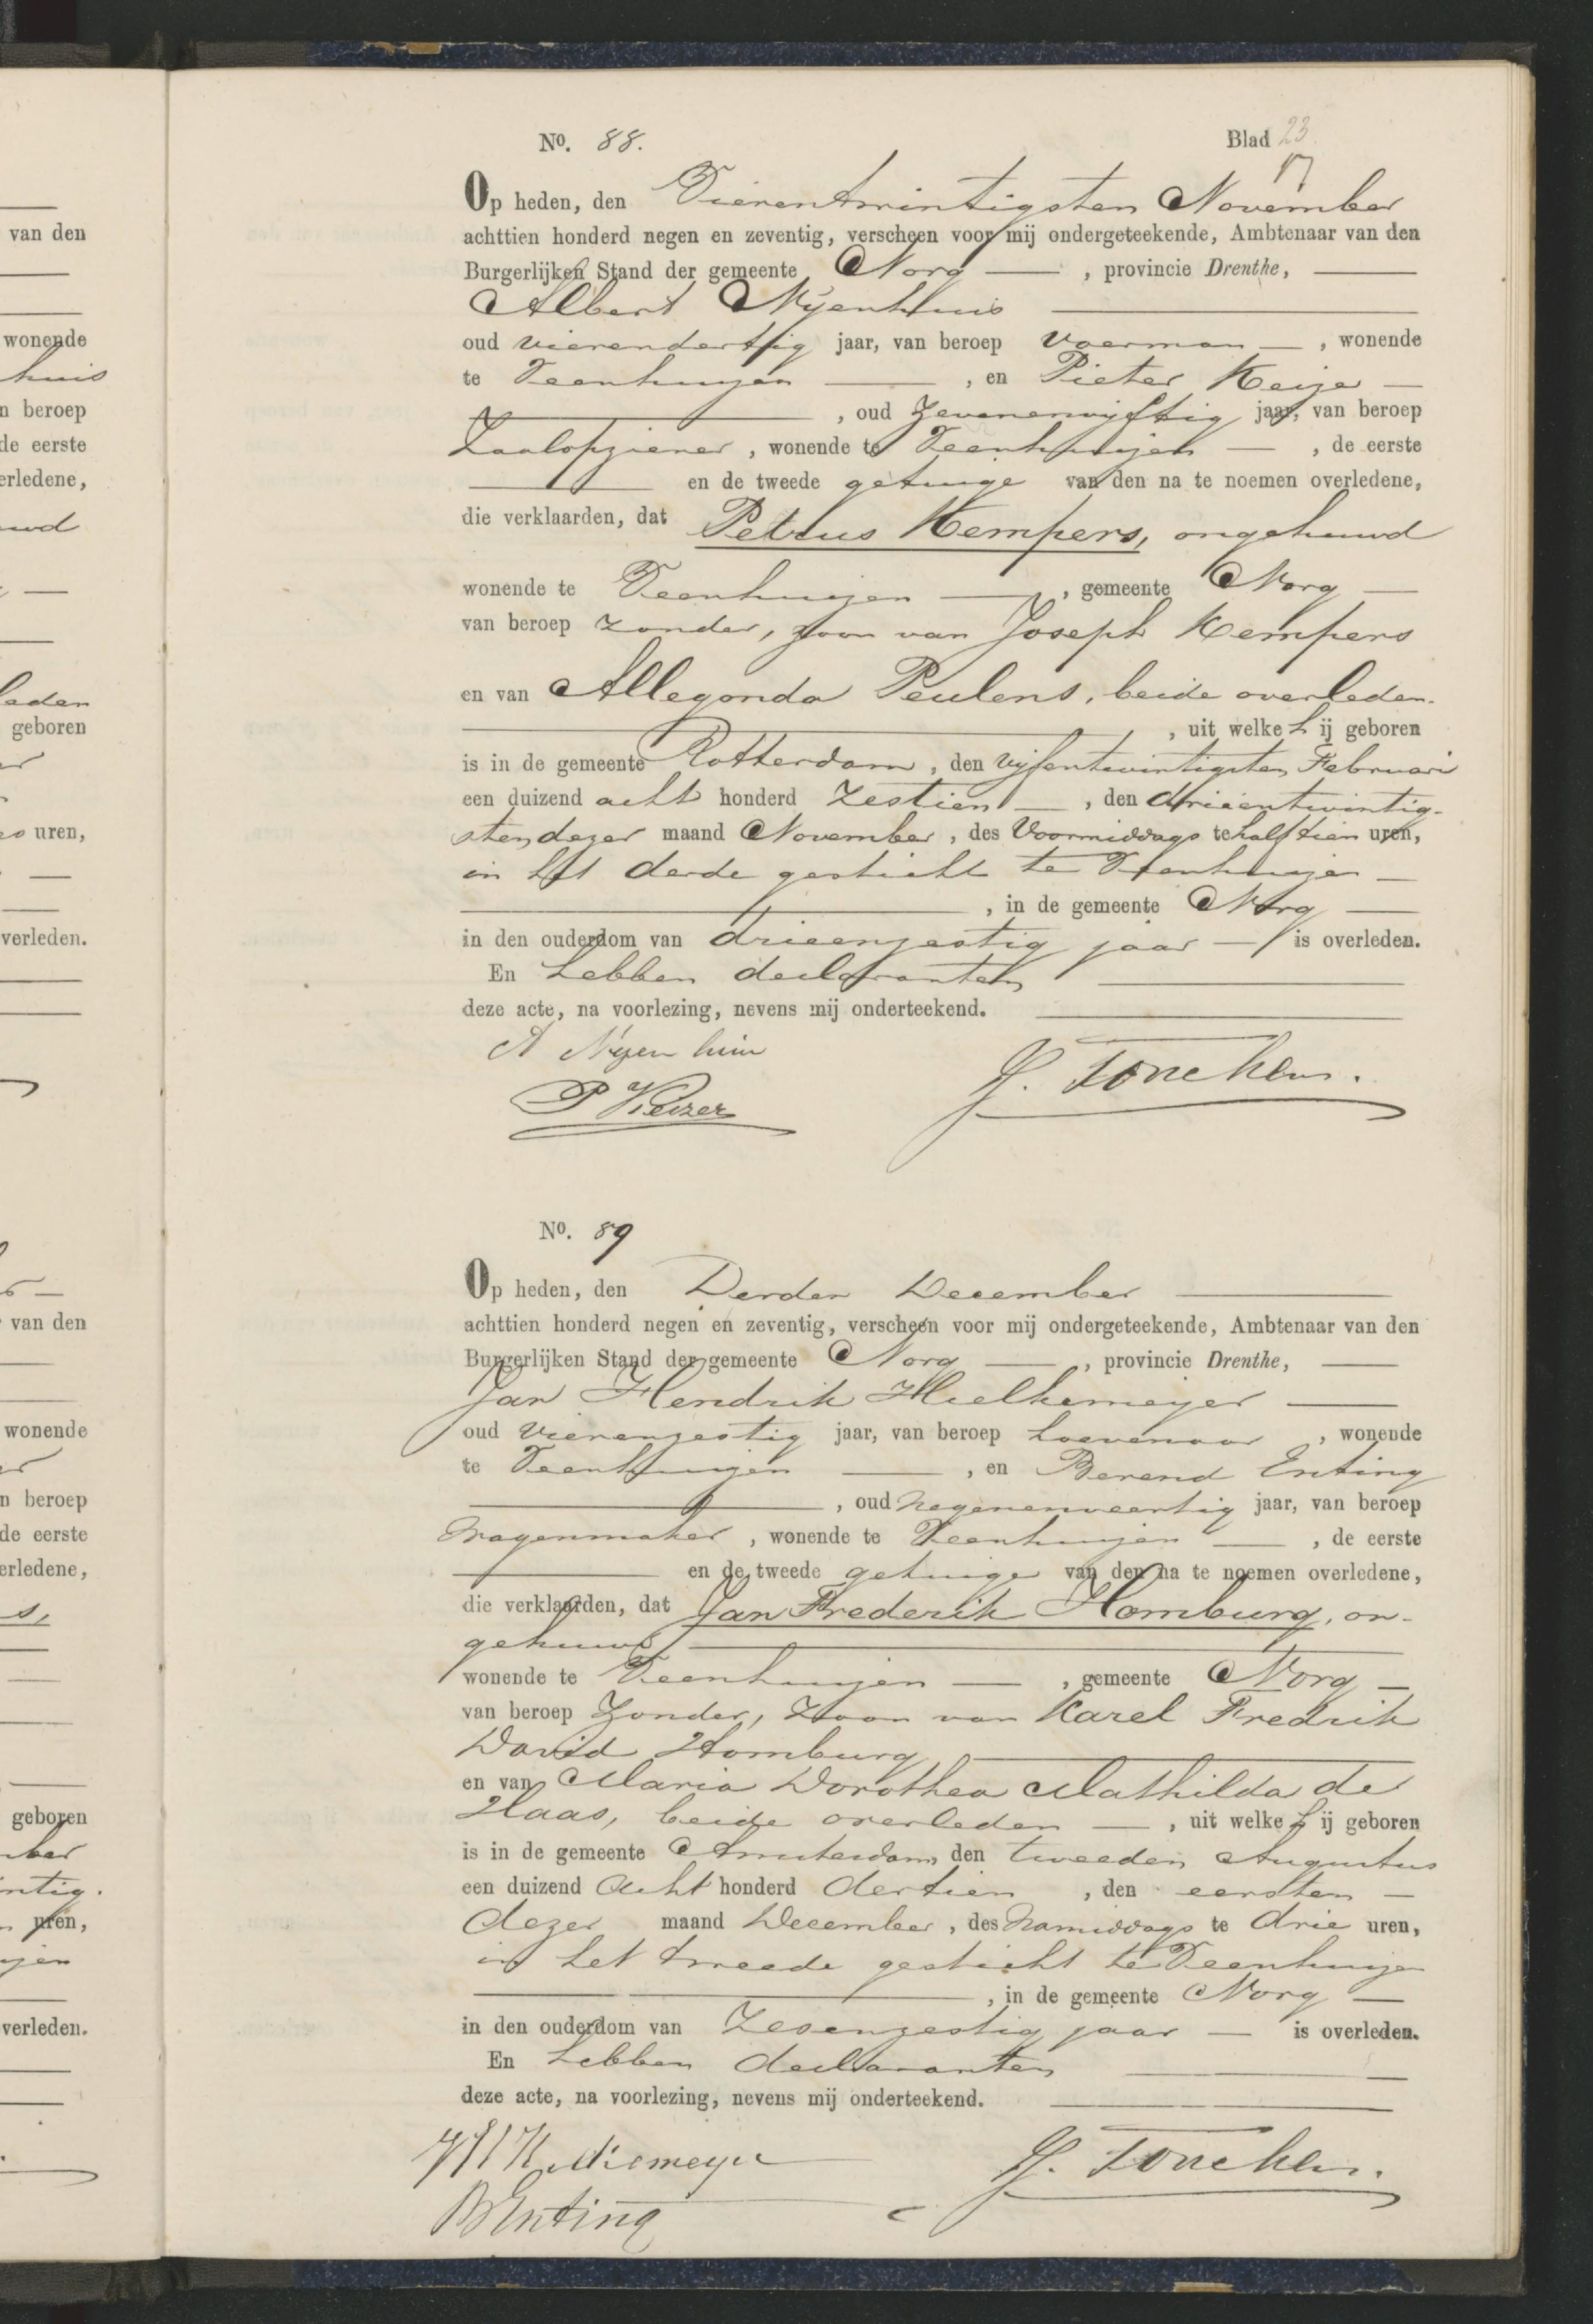 No. 88.
Blad 23
Op heden, den Vierentwintigsten November
achttien honderd negen en zeventig, verscheen voor mij ondergeteekende, Ambtenaar van den
Burgerlijken Stand der gemeente Norg — , provincie Drenthe,
Albert Nijenhuis
oud vierendertig jaar, van beroep Voerman — , wonende
te Veenhuizen — , en Pieter Keizer —
, oud Zevenenvijftig jaar, van beroep
Zaalopziener , wonende te Veenhuizen — , de eerste
en de tweede getuige van den na te noemen overledene,
die verklaarden, dat Petrus Kempers, ongehuwd
wonende te Veenhuizen — , gemeente Norg —
van beroep zonder, zoon van Joseph Kempers
en van Allegonda Peulens, beide overleden.
, uit welke hij geboren
is in de gemeente Rotterdam , den vijfentwintigsten Februari
een duizend acht honderd Zestien — , den drieëntwintig-
sten dezer maand November , des Voormiddags te half tien uren,
in het derde gesticht te Veenhuizen —
, in de gemeente Norg —
in den ouderdom van drieenzestig jaar — is overleden.
En hebben declaranten
deze acte, na voorlezing, nevens mij onderteekend.
A Nijenhuis
P Keizer
J. Tonckens.
No. 89
Op heden, den Derden December
achttien honderd negen en zeventig, verscheen voor mij ondergeteekende, Ambtenaar van den
Burgerlijken Stand der gemeente Norg — , provincie Drenthe,
Jan Hendrik
oud vierenzestig jaar, van beroep hoevenaar , wonende
te Veenhuizen — , en Berend Enting
, oud Negenenveertig jaar, van beroep
Wagenmaker , wonende te Veenhuizen — , de eerste
en de tweede getuige van den na te noemen overledene,
die verklaarden, dat Jan Frederik Homburg, on-
gehuwd
wonende te Veenhuizen — , gemeente Norg —
van beroep Zonder, Zoon van Karel Fredrik
David Homburg
en van Maria Dorothea Mathilda de
Haas, beide overleden — , uit welke hij geboren
is in de gemeente Amsterdam, den tweeden Augustus
een duizend Acht honderd dertien , den eersten —
dezer maand December , des Namiddags te drie uren,
in het tweede gesticht te Veenhuizen
, in de gemeente Norg —
in den ouderdom van Zesenzestig jaar — is overleden.
En hebben declaranten
deze acte, na voorlezing, nevens mij onderteekend.
B Enting
J. Tonckens.
van den
wonende
huis
n beroep
de eerste
erledene,
geboren
uren,
verleden.
van den
wonende
n beroep
de eerste
erledene,
geboren
ntig.
uren,
verleden.